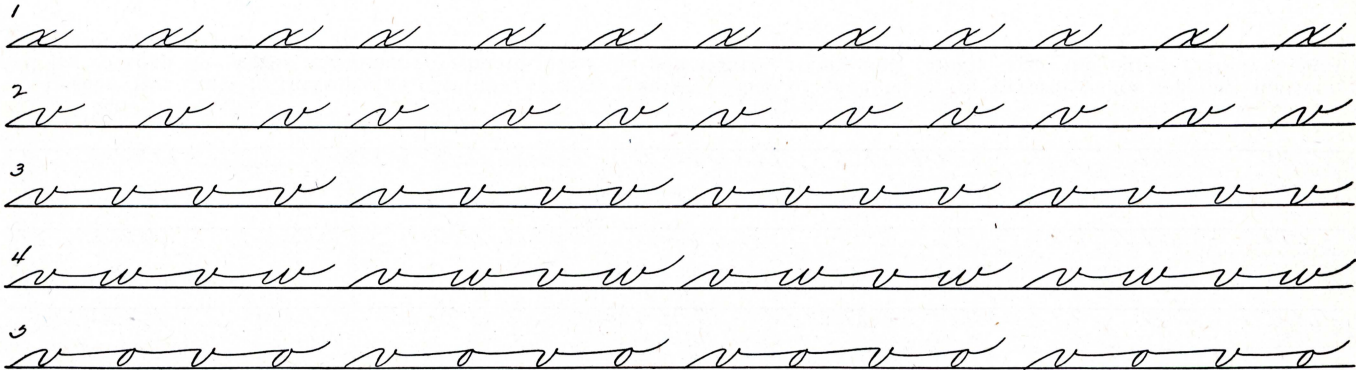 1
x x x x x x x x x x x x
2
v v v v v v v v v v v v
3
vvvv vvvv vvvv vvvv
4
vwvw vwvw vwvw vwvw
5
vovo vovo vovo vovo